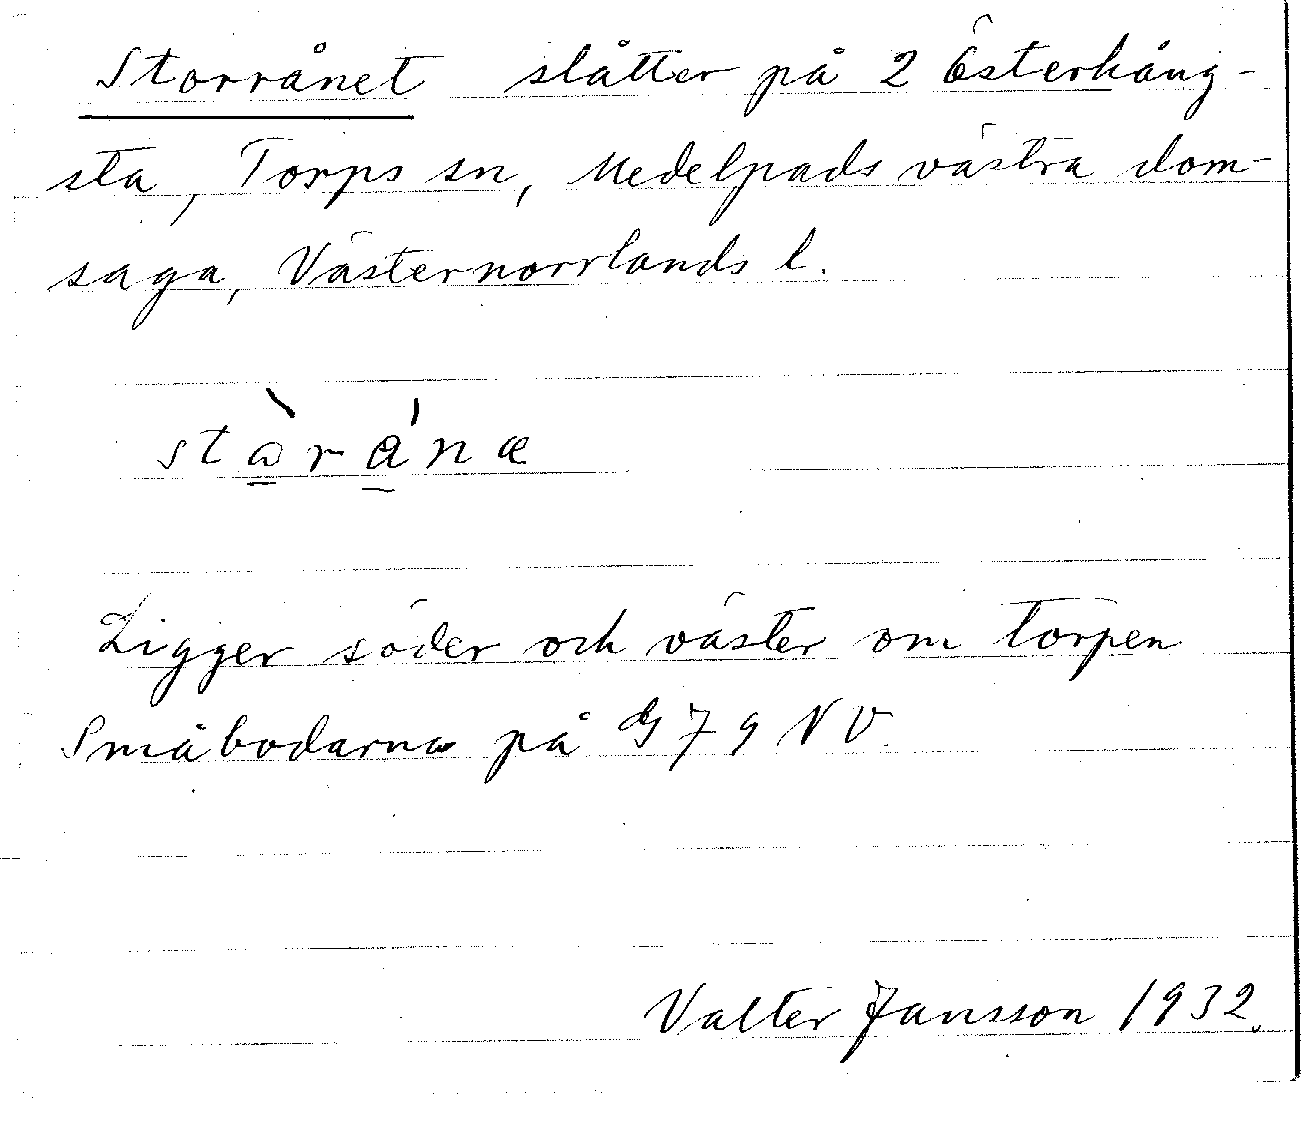 Storrånet slåtter på 2 Österhång-
sta, Torps sn, Medelpads västra dom-
saga, Västernorrlands l.
stàråna
Ligger söder och väster om torpen
Småbodarna på 79 NV.
Valter Jansson 1932.